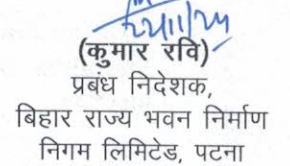 (कुमार रवि)
प्रबंध निदेशक,
बिहार राज्य भवन निर्माण
निगम लिमिटेड, पटना